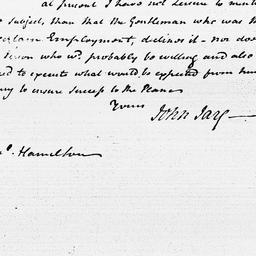 at present I have not Leisure to
Subject, than that the Gentleman who was
certain Employment, declines it – nor does
Person who wd. probably be willing and also
to execute what would be expected from him
to ensure success to the Plan
Yours
John Jay
Hamilton